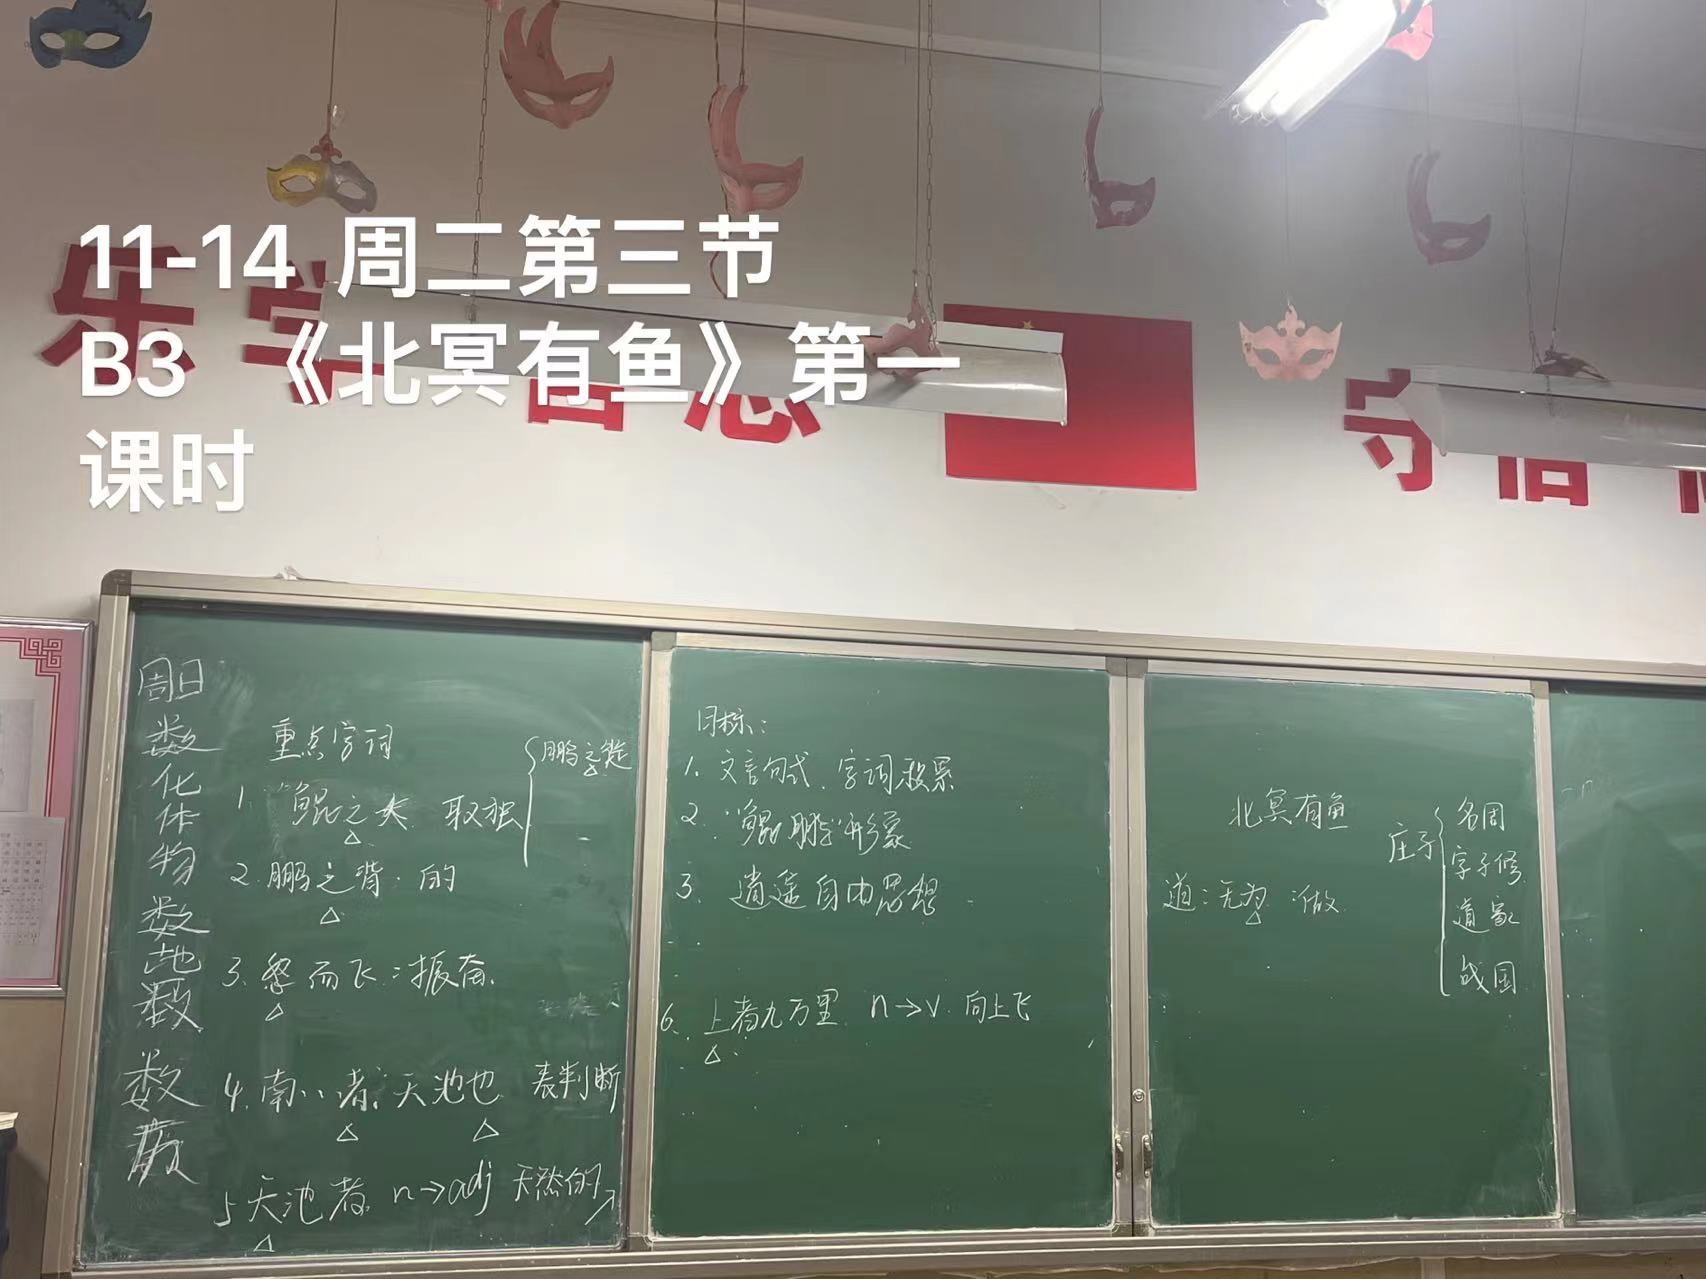 11-14 周二第三节
B3 《北冥有鱼》第一
课时
乐学 善思
守信
周日
数
化
体
物
数
地
数
数
重点字词
鹏之背
1. “鲲之大 取独
2. 鹏之背. 的
3. 怒而飞:振奋.
4. 南..者,天池也 表判断
5 天池者. n→adj 天然的
目标:
1. 文言句式. 字词积累
2. “鲲鹏”形象
3. 逍遥自由思想
6. 上者九万里. n→v. 向上飞
北冥有鱼
道:无为 :做
庄子
名周
字子休
道家
战国